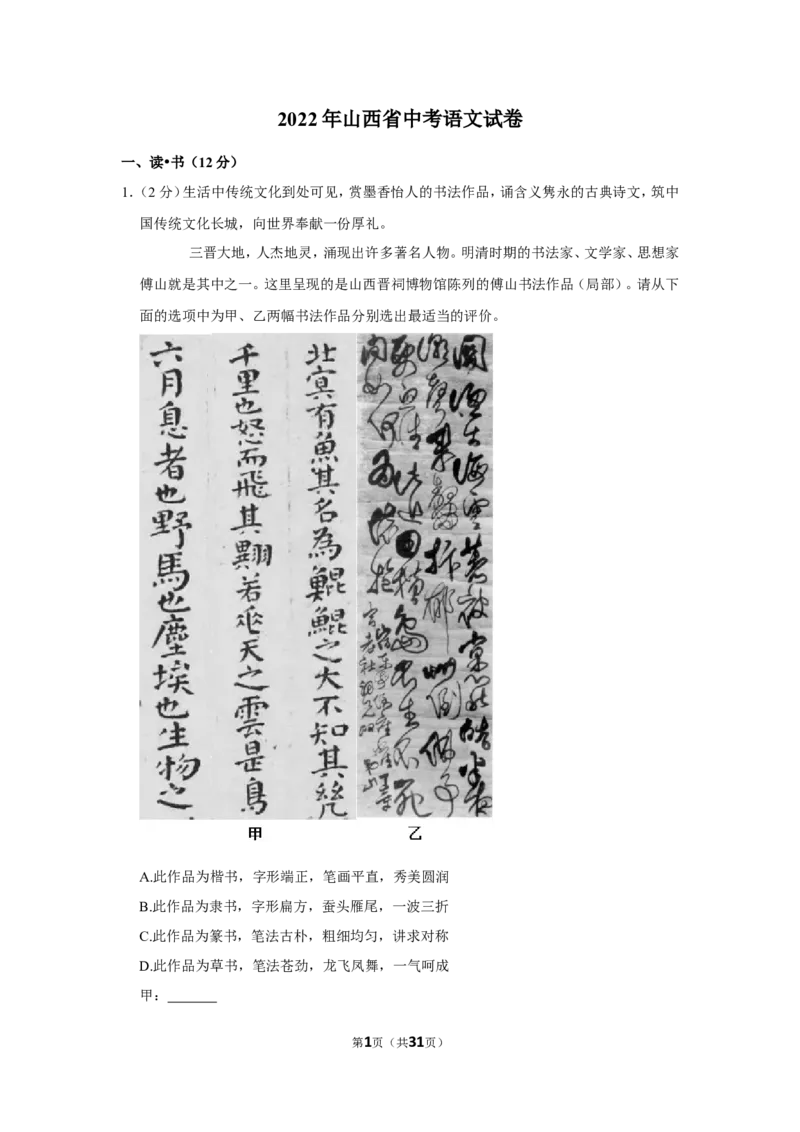 2022年山西省中考语文试卷
一、读•书（12分）
1.（2分）生活中传统文化到处可见，赏墨香怡人的书法作品，诵含义隽永的古典诗文，筑中
国传统文化长城，向世界奉献一份厚礼。
三晋大地，人杰地灵，涌现出许多著名人物。明清时期的书法家、文学家、思想家
傅山就是其中之一。这里呈现的是山西晋祠博物馆陈列的傅山书法作品（局部）。请从下
面的选项中为甲、乙两幅书法作品分别选出最适当的评价。
北冥有魚其名為鯤鯤之大不知其幾
千里也怒而飛其翼若垂天之雲是鳥
六月息者也野馬也塵埃也生物之
甲
乙
A.此作品为楷书，字形端正，笔画平直，秀美圆润
B.此作品为隶书，字形扁方，蚕头雁尾，一波三折
C.此作品为篆书，笔法古朴，粗细均匀，讲求对称
D.此作品为草书，笔法苍劲，龙飞凤舞，一气呵成
甲：_______
第1页（共31页）